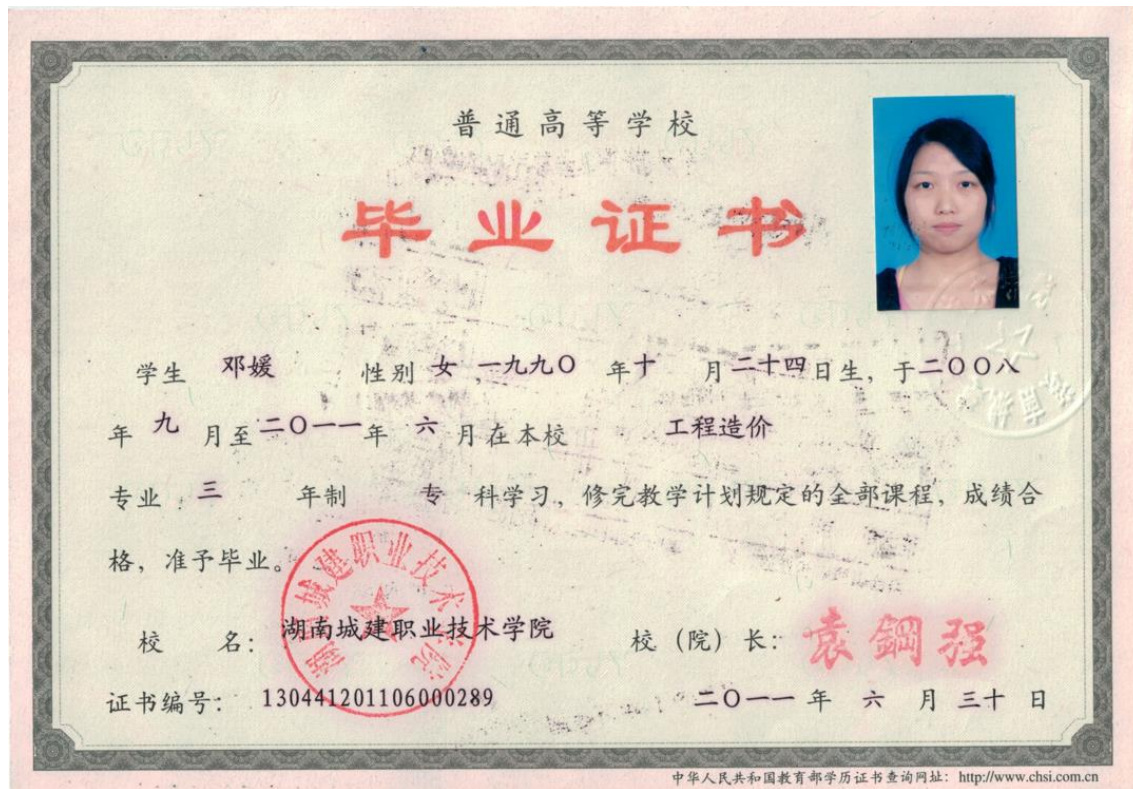 普通高等学校
毕业证书
学生 邓媛 性别 女，一九九〇 年十 月二十四日生，于二〇〇八
年 九 月至二〇一一年 六 月在本校 工程造价
专业 三 年制 专 科学习，修完教学计划规定的全部课程，成绩合
格，准予毕业。
湖南城建职业技术学院
校 名：湖南城建职业技术学院 校（院）长：袁鋼强
证书编号：130441201106000289 二〇一一 年 六 月 三十 日
中华人民共和国教育部学历证书查询网址：http://www.chsi.com.cn